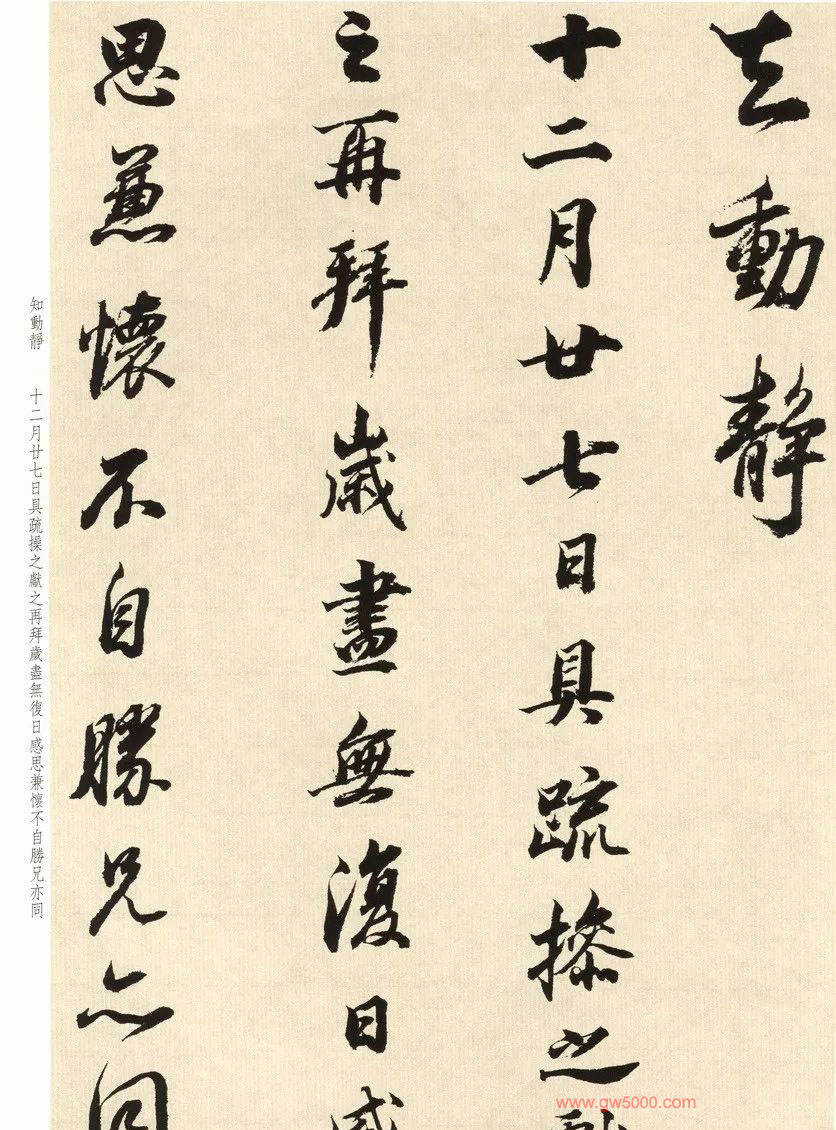 知動靜
十二月廿七日具疏操之獻
之再拜歲盡無復日感
思兼懷不自勝兄亦同
知動靜 十二月廿七日具疏操之獻之再拜歲盡無復日感思兼懷不自勝兄亦同
www.gw5000.com